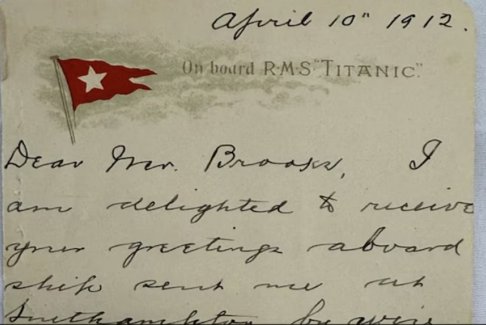 April 10" 1912.
On board R·M·S "TITANIC".
Dear Mr. Brooks, I
am delighted to receive
your greetings aboard
ship sent me at
Southampton by wire